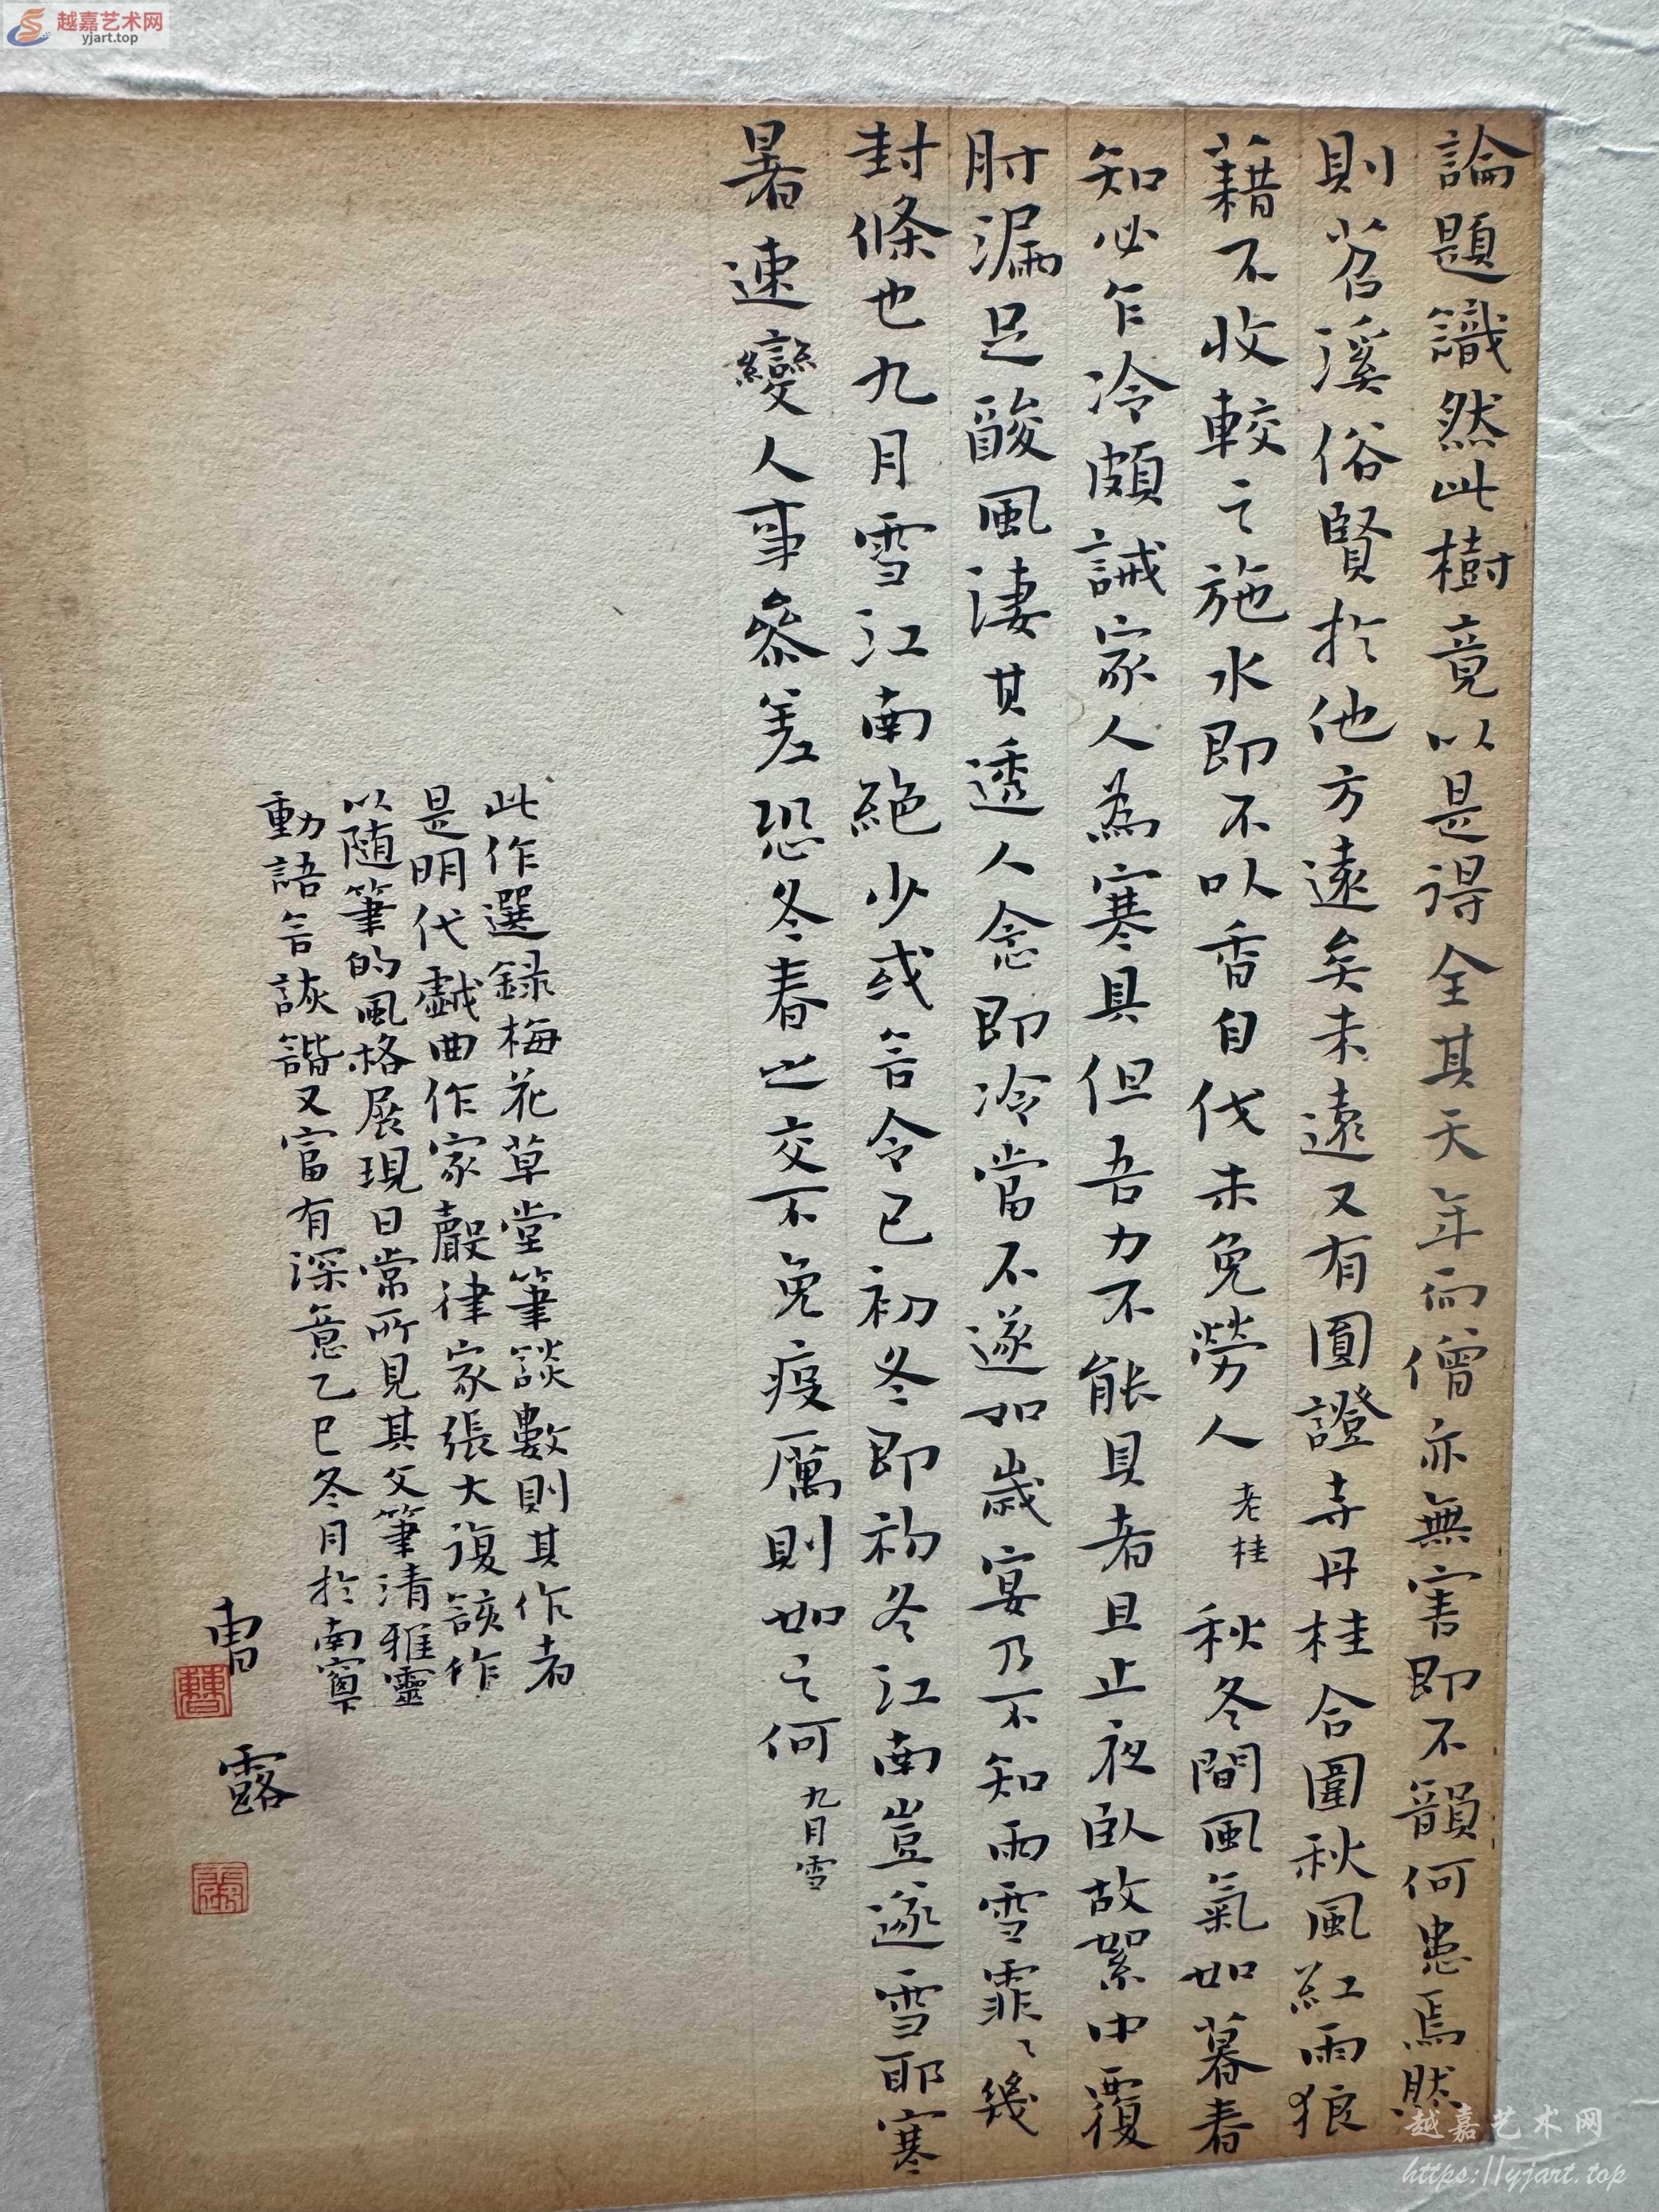 越嘉艺术网
yjart.top
論題識然此樹竟以是得全其天年而僧亦無害即不韻何患焉然
則苕溪俗賢於他方遠矣未遠又有圓證寺丹桂合圍秋風紅雨狼
藉不收較之施水即不以香自伐未免勞人 老桂 秋冬間風氣如暮春
知必乍冷頗誡家人為寒具但吾力不能具者且止夜臥故絮中覆
肘漏足酸風淒其透人念即冷當不遂如歲宴乃不知雨雪霏々幾
封條也九月雪江南絕少或言令已初冬即初冬江南豈遂雪耶寒
暑速變人事參差恐冬春之交不免疫厲則如之何 九月雪
此作選録梅花草堂筆談數則其作者
是明代戲曲作家聲律家張大復該作
以随筆的風格展現日常所見其文筆清雅靈
動語言詼諧又富有深意乙巳冬月於南窗下
曹露
越嘉艺术网
https://yjart.top